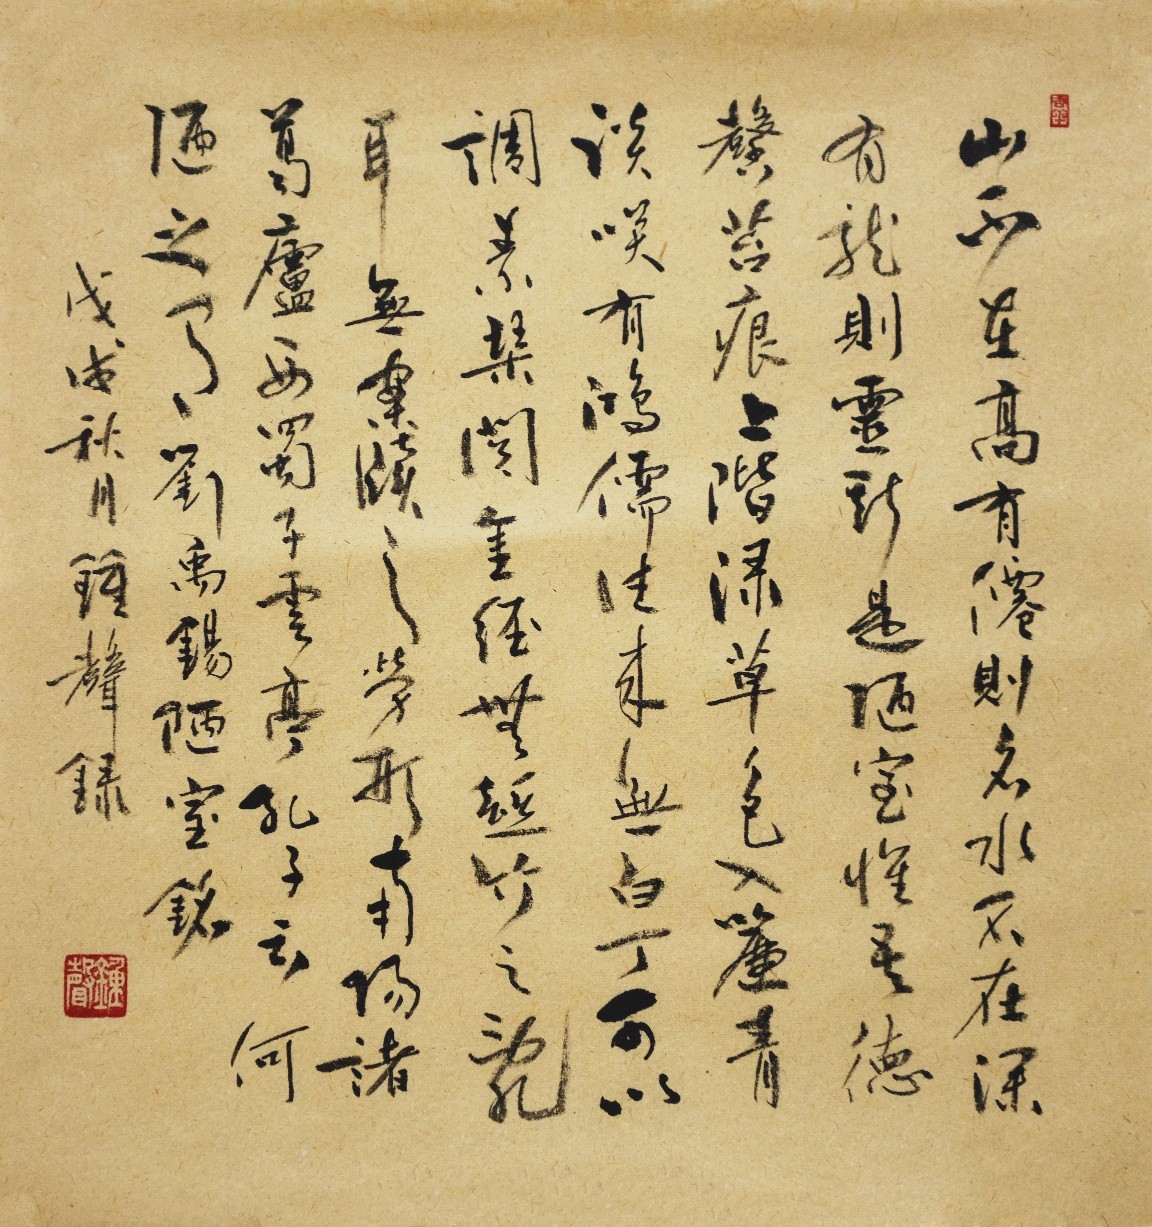 山不在高有僊則名水不在深
有龍則靈斯是陋室惟吾德
馨苔痕上階渌草色入簾青
談咲有鴻儒往来無白丁可以
調素琹閲金經無絲竹之亂
耳無案牘之勞形南陽諸
葛廬西蜀子雲亭孔子云何
陋之有劉禹錫陋室銘
戊戌秋月鍾聲録
鍾聲